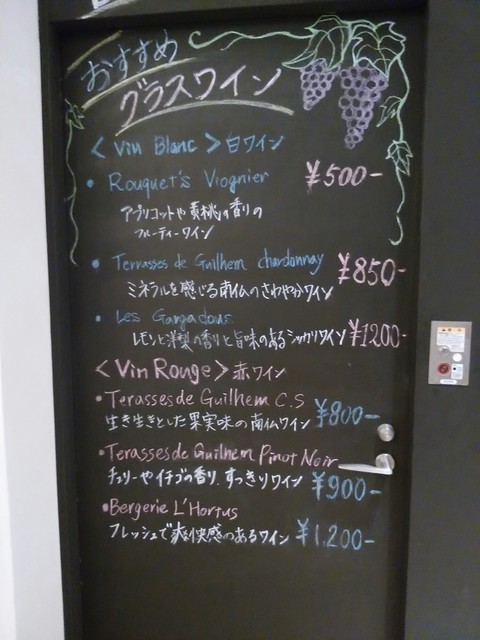 おすすめ
グラスワイン
＜Vin Blanc＞白ワイン
• Rouquet's Viognier ¥500-
アプリコットや黄桃の香りの
フルーティーワイン
• Terrasses de Guilhem chardonnay ¥850-
ミネラルを感じる南仏のさわやかワイン
• Les Gargadous
レモンと洋梨の香りと旨味のあるシッカリワイン ¥1200-
＜Vin Rouge＞赤ワイン
• Terasses de Guilhem C.S
生き生きとした果実味の南仏ワイン ¥800-
• Terasses de Guilhem Pinot Noir
チェリーやイチゴの香り.すっきりワイン ¥900-
• Bergerie L'Hortus
フレッシュで爽快感のあるワイン ¥1,200-